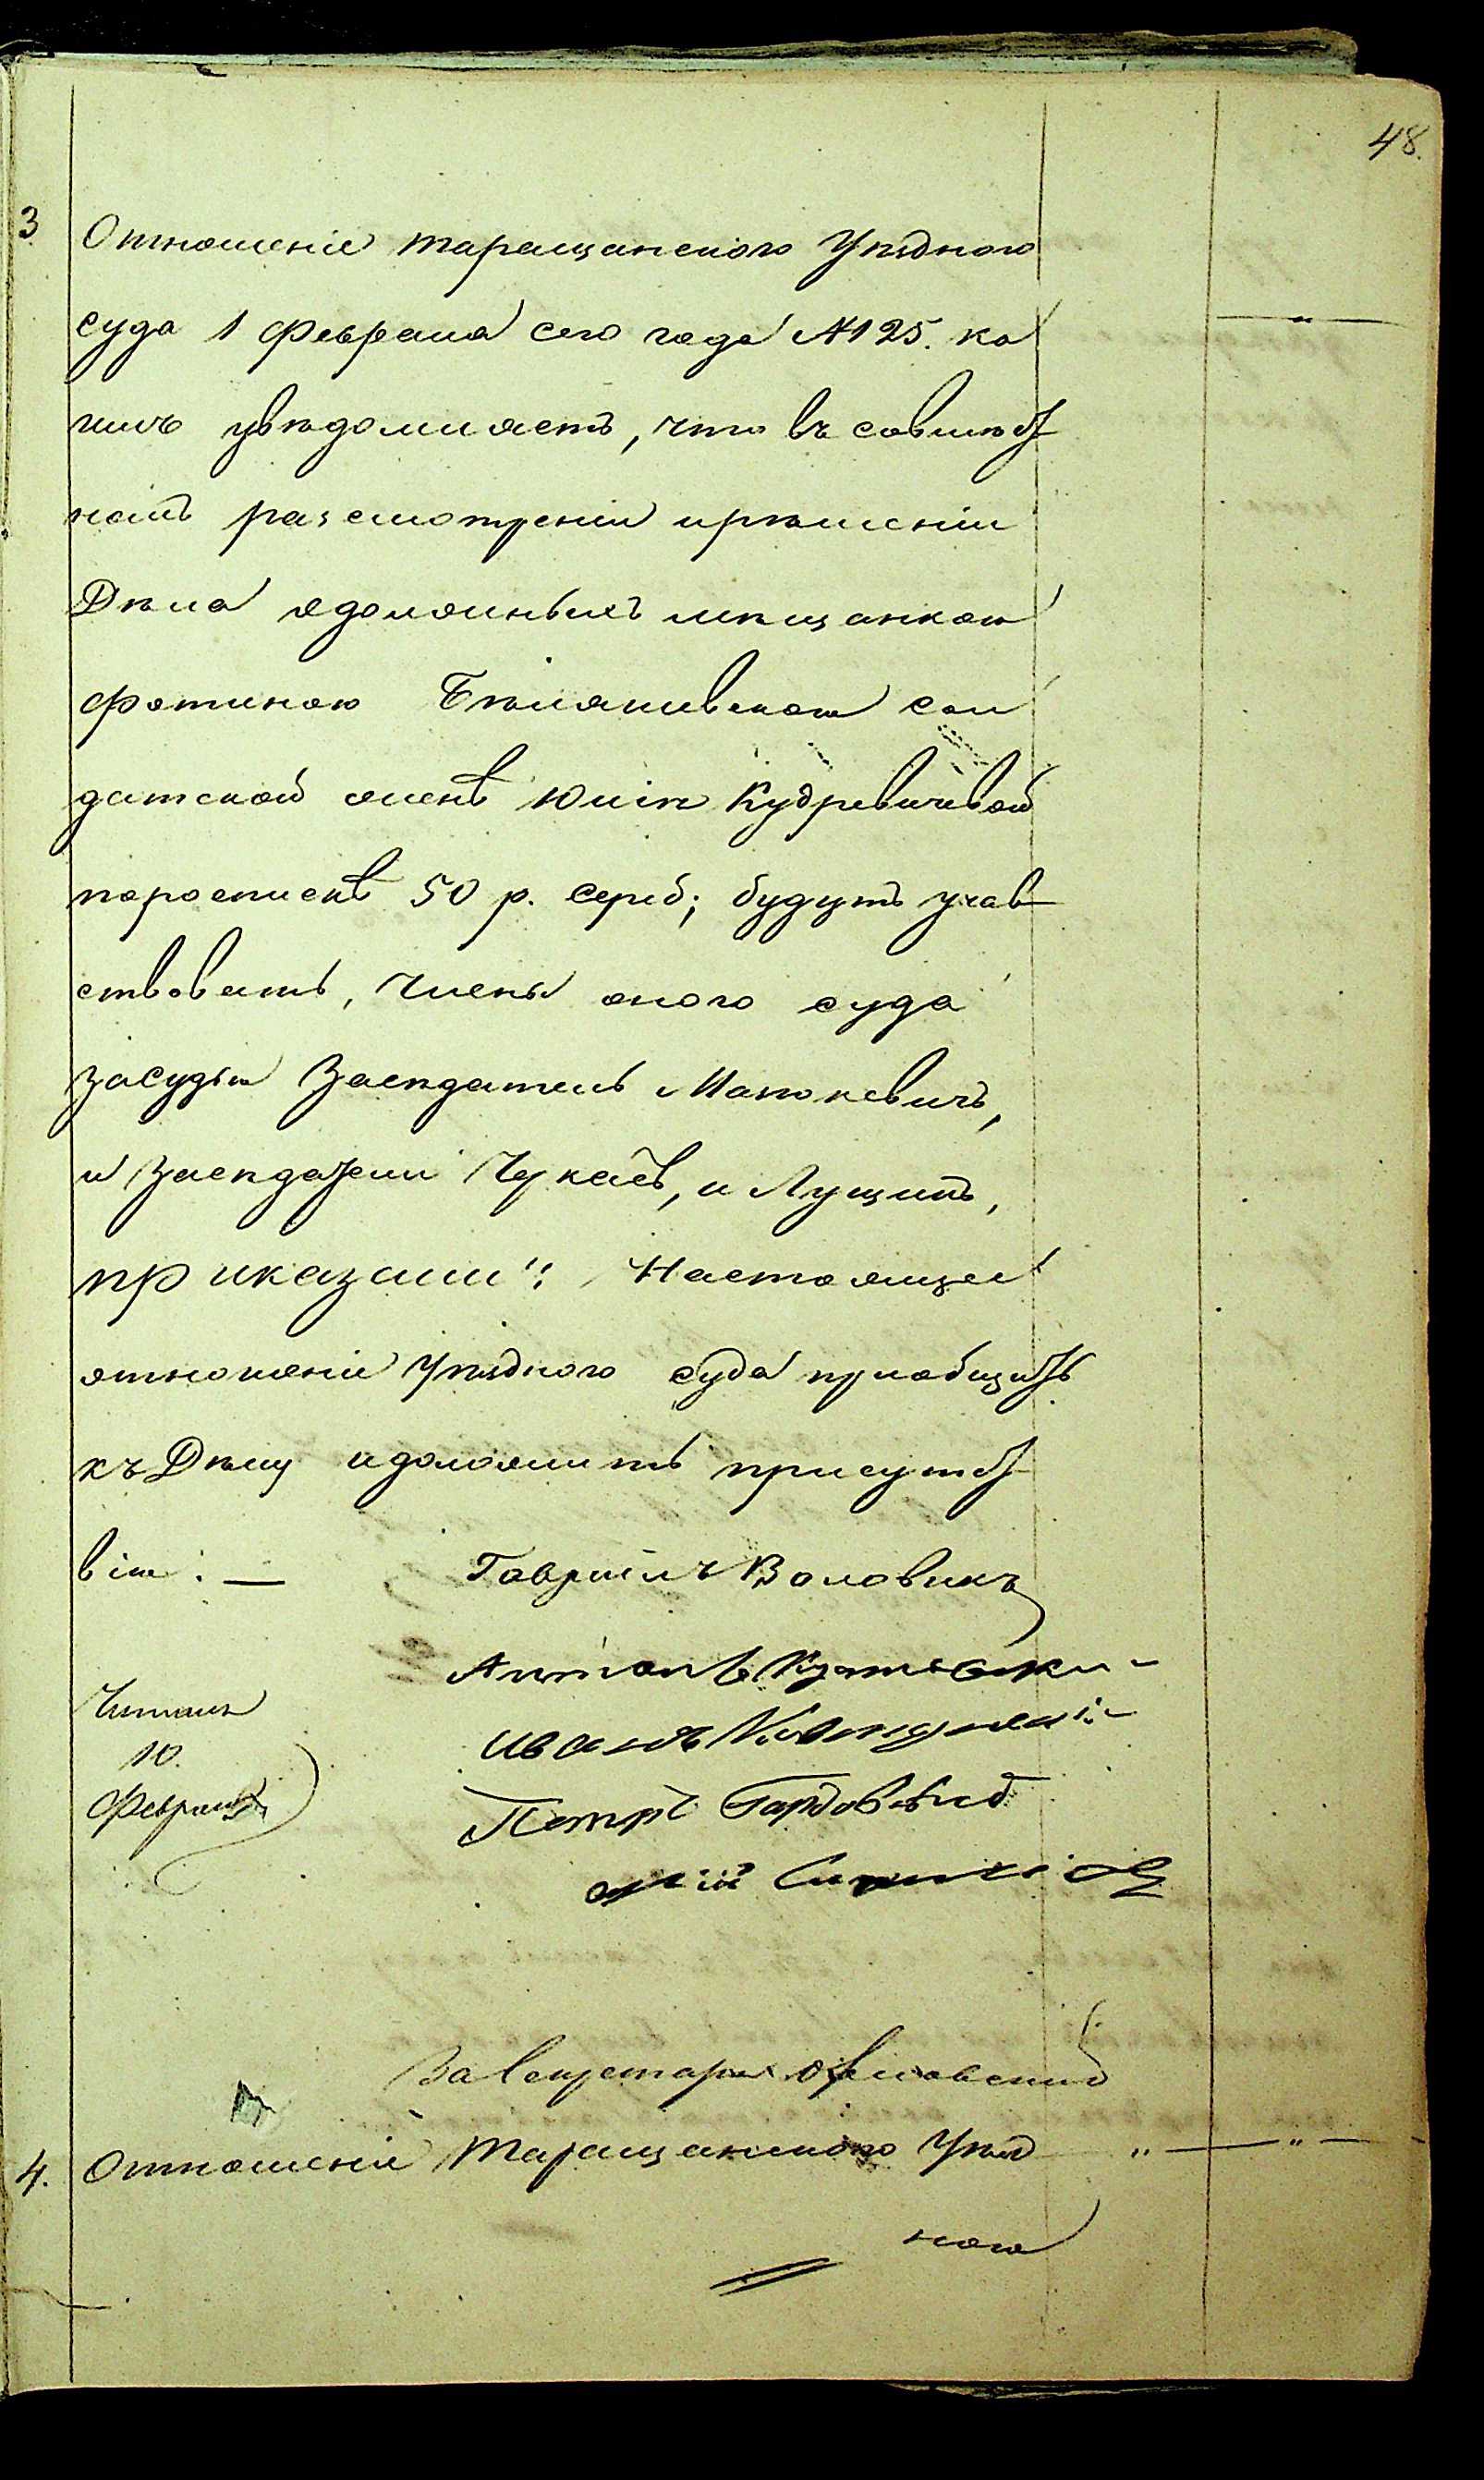 48.
3
Отношеніе таращанского Уѣздного
суда 1 февраля сего года №125. ка
имъ увѣдомляетъ, что въ совмѣст
номъ разсмотреніи ирѣшеніи
Дѣла одолжныхъ мѣщанкою
фотиною Бѣляшивскою сол
датской женѣ Юліи Кудревичевой
поросписке 50 р. сереб; будутъ учав
ствовать, члены оного суда
засудью Засѣдатель Маткевичъ,
и Засѣдатели Чукаевъ, и Лущинъ,
приказали": Настоящее
отношеніе Уѣздного суда приобщить
къ Дѣлу идоложить присутст
вію: —
Гавріилъ Воловикъ
Антонъ
Иванъ
Петръ
Читалъ
10.
Февраля
За Секретаря
4. Отношеніе Таращанского Уѣзд
ного